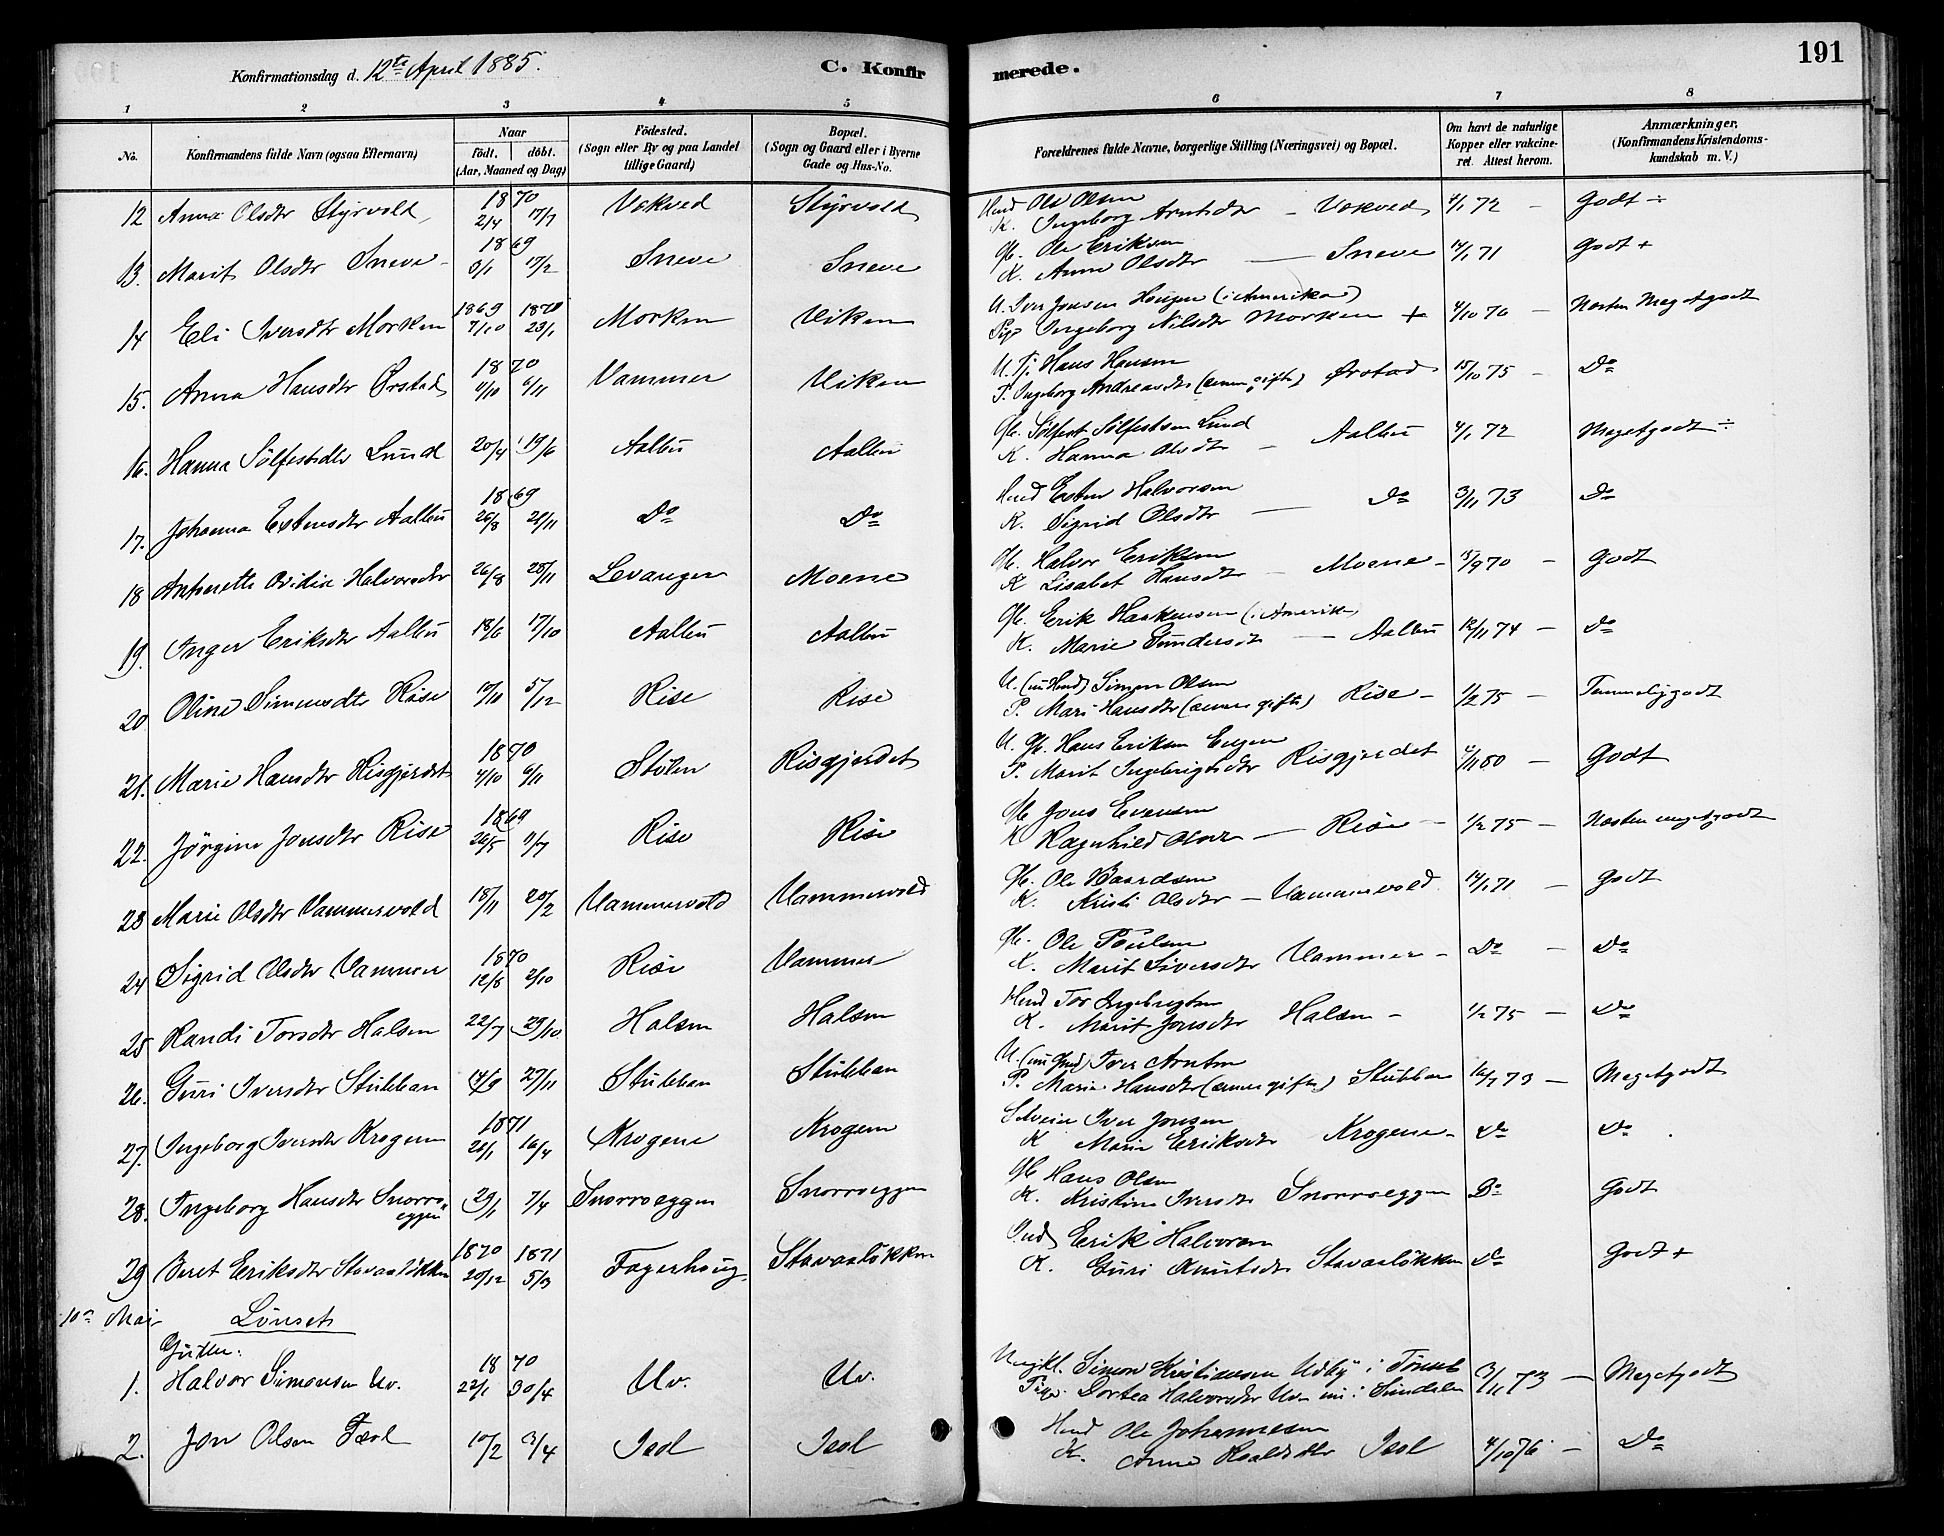 191
Konfirmationsdag d. 12te April 1885.
C. Konfirmerede.
1 2 3 4 5 6 7 8
No.
Konfirmandens fulde Navn (ogsaa Efternavn)
Naar
födt. döbt.
(Aar, Maaned og Dag)
Födested.
(Sogn eller By og paa Landet
tillige Gaard)
Bopæl.
(Sogn og Gaard eller i Byerne
Gade og Hus-No.
Forældrenes fulde Navne, borgerlige Stilling (Næringsvei) og Bopæl.
Om havt de naturlige
Kopper eller vakcine-
ret. Attest herom.
Anmærkninger.
(Konfirmandens Kristendoms-
kundskab m. V.)
12 Anna Olsdtr Styrvold 1870 2/4 17/7 Vekved Styrvold Olsen K. Ingeborg Arntsdtr - Vekved 4/1 72 - Godt ÷
13. Marit Olsdtr Sneve 1869 17/2 Sneve Sneve Ole Eriksen K. Anne Olsdtr - Sneve 14/1 71 Godt +
14 Eli Iversdtr Morken 1869 7/10 1870 23/1 Morken Viken U. Iver Jonsen Haugen (i Amerika) Pige Ingeborg Nilsdtr Morken + 4/10 70 - Næsten Megetgodt
15. Anna Hansdtr Ørstad 1870 6/11 Vammer Viken U. Tj. Hans Hansen P. Ingeborg Andreasdtr Ørstad 15/10 75 - Do
16. Hanna Sølfestdtr Lund 20/4 19/6 Aalbu Aalbu Sølfest Sølfestsen Lund K. Hanna Olsdtr - Aalbu 4/1 72 Megetgodt ÷
17. Johanna Estensdtr Aalbu 1869 26/8 Do Do Esten Halvorsen K. Sigrid Olsdtr - Do 3/11 73 Do
18 Antonette Halvorsdtr 26/8 28/11 Levanger Moene Halvor Eriksen K Lisabet Hansdtr - Moene - Godt
19. Inger Eriksdtr Aalbu 18/6 17/10 Aalbu Aalbu Erik Haakensen (i Amerika) K. Marie - Aalbu 12/11 74 - Do
20 Olina Simensdtr Rise 5/12 Rise Rise U. Simen Olsen P. Mari Hansdtr Rise - 1/2 75 - Temmeliggodt
21. Marie Hansdtr Risgjerdet 1870 4/10 6/11 Stølen Risgjerdet U. Hans Eriksen P. Marit Ingebrigtsdtr Risgjerdet - Godt
22. Jørgine Jonsdtr Rise 1869 26/5 11/7 Rise Rise Jons Evensen K Ragnhild - Rise - 1/2 75 - Næsten megetgodt
23 Marie Olsdtr Vammervold 18/11 20/2 Vammervold Vammervold Ole Baardsen K. Kristi Olsdtr - Vammervold 14/1 71 - Godt
24 Sigrid Olsdtr Vammer 1870 2/10 Rise Vammer Ole Poulsen K. Marit Siversdtr Vammer - Do - Do
25 Randi Torsdtr Halsen 22/7 29/10 Halsen Halsen Tor Ingebrigtsen K. Marit Jonsdtr Halsen - 1/2 75 - Do
26. Guri Iversdtr Stubban 14/9 27/11 Stubban Stubban U. Iver Arntsen P. Marie Hansdtr Stubban 16/7 73 - Megetgodt
27. Ingeborg Iversdtr Krogen 1871 16/4 Krogene Krogen Iver Jonsen K Marie Eriksdtr Krogene - Do Do
28. Ingeborg Hansdtr Snorroeggen 29/1 7/4 Snorroeggen Snorroeggen Hans Olsen K. Kristine Iversdtr Snorroeggen Do Godt
29 Beret Eriksdtr Stavaaløkken 1870 29/12 1871 5/3 Fagerhaug Stavaaløkken Ind Erik Halvorsen K. Guri Knutsdtr Stavaaløkken Do Godt +
10de Mai Lønset
Gutter:
1. Halvor Simonsen Uv. 1870 22/1 30/4 Uv. Uv. Ungkl. Simon Kristiansen Udby i Tønset Pige Dortea Halvorsdtr Uv nu i Sundalen 3/11 73 - Megetgodt
2. Jon Olsen 10/2 3/4 Ole Johannesen K. Anne Roaldsdtr 4/10 76 - Do